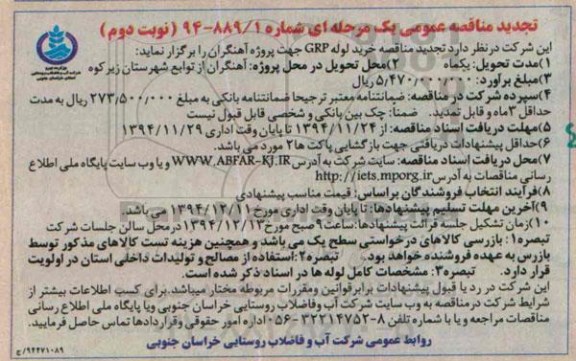 تجدید مناقصه عمومی یک مرحله ای شماره ۹۴-۸۸۹/۱ (نوبت دوم)
این شرکت در نظر دارد تجدید مناقصه خرید لوله GRP جهت پروژه آهنگران را برگزار نماید:
۱)مدت تحویل: یکماه ۲)محل تحویل در محل پروژه: آهنگران از توابع شهرستان زیرکوه
۳)مبلغ برآورد: ۵/۴۷۰/۰۰۰/۰۰۰ ریال
۴)سپرده شرکت در مناقصه: ضمانتنامه معتبر ترجیحا ضمانتنامه بانکی به مبلغ ۲۷۳/۵۰۰/۰۰۰ ریال به مدت
حداقل ۳ماه و قابل تمدید. ضمناً: چک بین بانکی و شخصی قابل قبول نیست
۵)مهلت دریافت اسناد مناقصه: از ۱۳۹۴/۱۱/۲۴ تا پایان وقت اداری ۱۳۹۴/۱۱/۲۹
۶)حداقل پیشنهادات دریافتی جهت بازگشایی پاکت ها ۲ مورد می باشد.
۷)محل دریافت اسناد مناقصه: سایت شرکت به آدرس WWW.ABFAR-KJ.IR و یا وب سایت پایگاه ملی اطلاع
رسانی مناقصات به آدرس http://iets.mporg.ir
۸)فرآیند انتخاب فروشندگان براساس: قیمت مناسب پیشنهادی
۹)آخرین مهلت تسلیم پیشنهادها: تا پایان وقت اداری مورخ ۱۳۹۴/۱۲/۱۱ می باشد
۱۰)زمان تشکیل جلسه قرائت پیشنهادها: ساعت ۹ صبح مورخ ۱۳۹۴/۱۲/۱۳ در محل سالن جلسات شرکت
تبصره۱: بازرسی کالاهای درخواستی سطح یک می باشد و همچنین هزینه تست کالاهای مذکور توسط
بازرس به عهده فروشنده خواهد بود. تبصره۲: استفاده از مصالح و تولیدات داخلی استان در اولویت
قرار دارد. تبصره۳: مشخصات کامل لوله ها در اسناد ذکر شده است.
این شرکت در رد یا قبول پیشنهادات برابر قوانین و مقررات مربوطه مختار میباشد. برای کسب اطلاعات بیشتر از
شرایط شرکت در مناقصه به وب سایت شرکت آب و فاضلاب روستایی خراسان جنوبی و یا پایگاه ملی اطلاع رسانی
مناقصات مراجعه و یا با شماره تلفن ۸-۳۲۲۱۴۷۵۲-۰۵۶ اداره امور حقوقی و قراردادها تماس حاصل فرمایید.
روابط عمومی شرکت آب و فاضلاب روستایی خراسان جنوبی
۹۴۴۷۱۰۸۹/ج